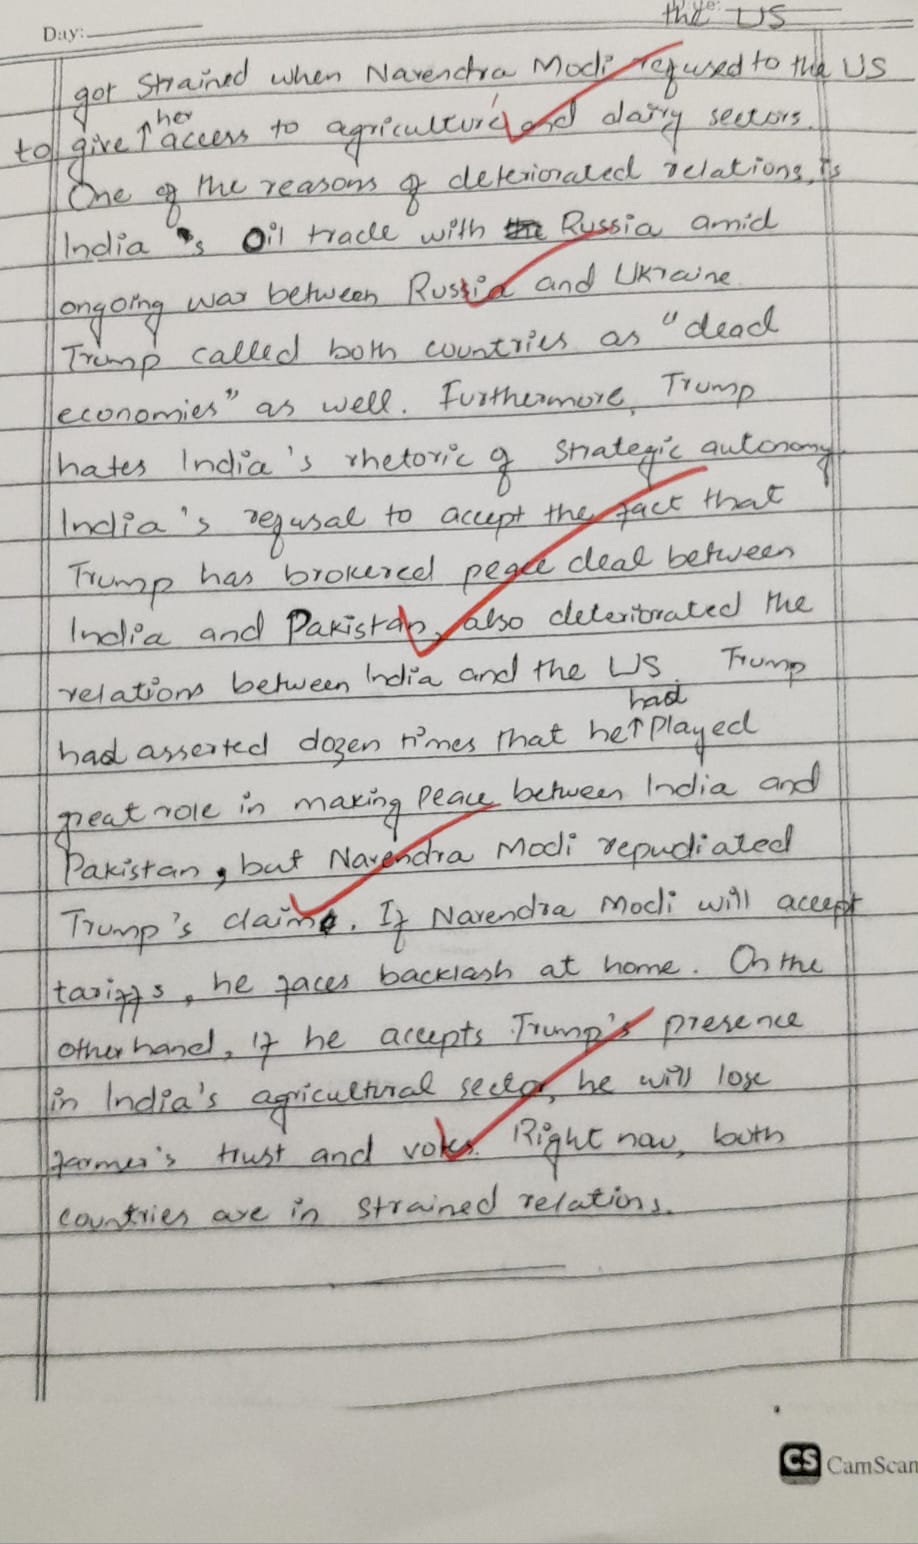 the US
Day:
got strained when Narendra Modi refused to the US
her
to give ↑ access to agriculture and dairy sectors.
One of the reasons of deteriorated relations, is
India's Oil trade with Russia amid
ongoing war between Russia and Ukraine
Trump called both countries as "dead
economies" as well. Furthermore, Trump
hates India's rhetoric of strategic autonomy
India's refusal to accept the fact that
Trump has brokered peace deal between
India and Pakistan, also deteriorated the
relations between India and the US. Trump
had
had asserted dozen times that he↑ played
great role in making peace between India and
Pakistan, but Narendra Modi repudiated
Trump's claim. If Narendra Modi will accept
tariffs, he faces backlash at home. On the
other hand, if he accepts Trump's presence
in India's agricultural sector, he will lose
farmer's trust and votes. Right now, both
countries are in strained relations.
CS CamScan